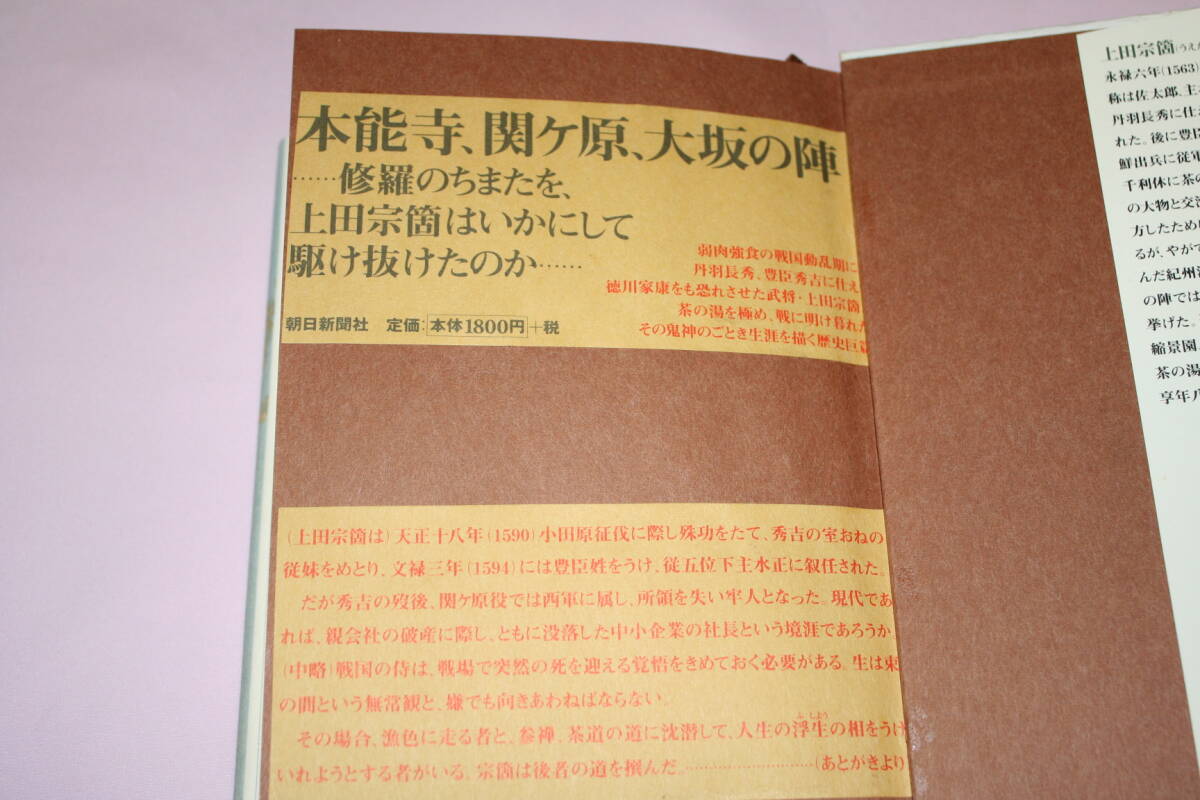 本能寺、関ケ原、大坂の陣
……修羅のちまたを、
上田宗箇はいかにして
駆け抜けたのか……
弱肉強食の戦国動乱期に
丹羽長秀、豊臣秀吉に仕え
徳川家康をも恐れさせた武将・上田宗箇
茶の湯を極め、戦に明け暮れた
その鬼神のごとき生涯を描く歴史巨篇
朝日新聞社 定価:本体1800円+税
(上田宗箇は)天正十八年(1590)小田原征伐に際し殊功をたて、秀吉の室おねの
従妹をめとり、文禄三年(1594)には豊臣姓をうけ、従五位下主水正に叙任された。
だが秀吉の歿後、関ケ原役では西軍に属し、所領を失い牢人となった。現代であ
れば、親会社の破産に際し、ともに没落した中小企業の社長という境涯であろうか。
(中略)戦国の侍は、戦場で突然の死を迎える覚悟をきめておく必要がある。生は束
の間という無常観と、嫌でも向きあわねばならない。
その場合、漁色に走る者と、参禅、茶道の道に沈潜して、人生の浮生の相をうけ
ふしよう
いれようとする者がいる。宗箇は後者の道を撰んだ。……………………(あとがきより
上田宗箇(うえ
永禄六年(1563)
称は佐太郎、主
丹羽長秀に仕
れた。後に豊
鮮出兵に従軍
千利休に茶の
の大物と交
方したため
るが、やがて
んだ紀州
の陣では
挙げた。
縮景園
茶の湯
享年八